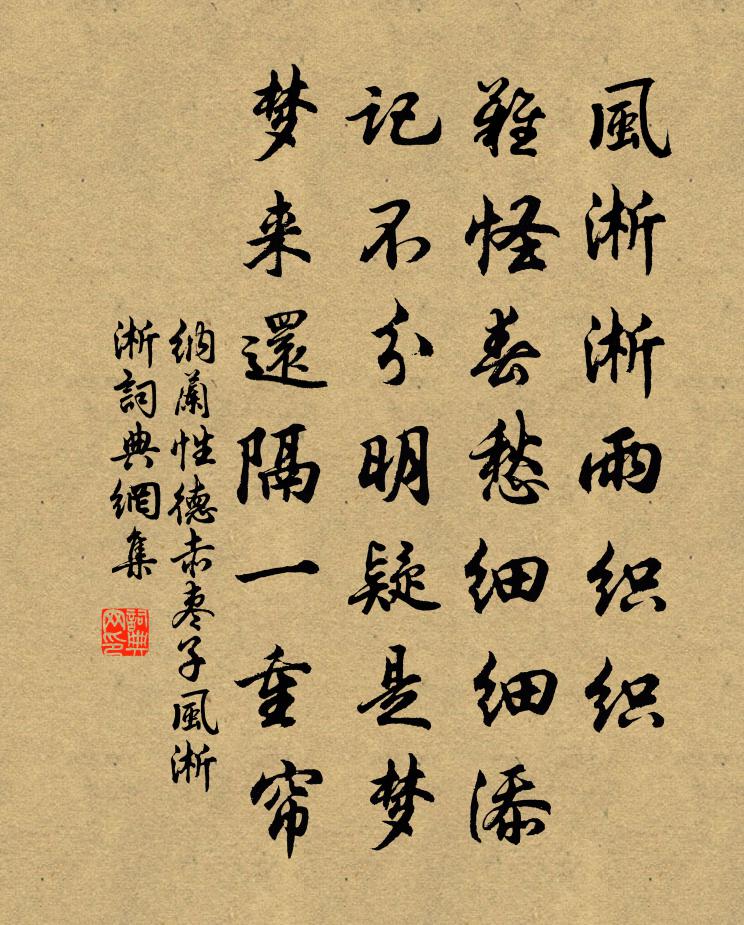 風淅淅雨织织
難怪春愁细细添
记不分明疑是梦
梦来還隔一重帘
纳蘭性德赤枣子風淅
淅詞典網集
詞典
网印